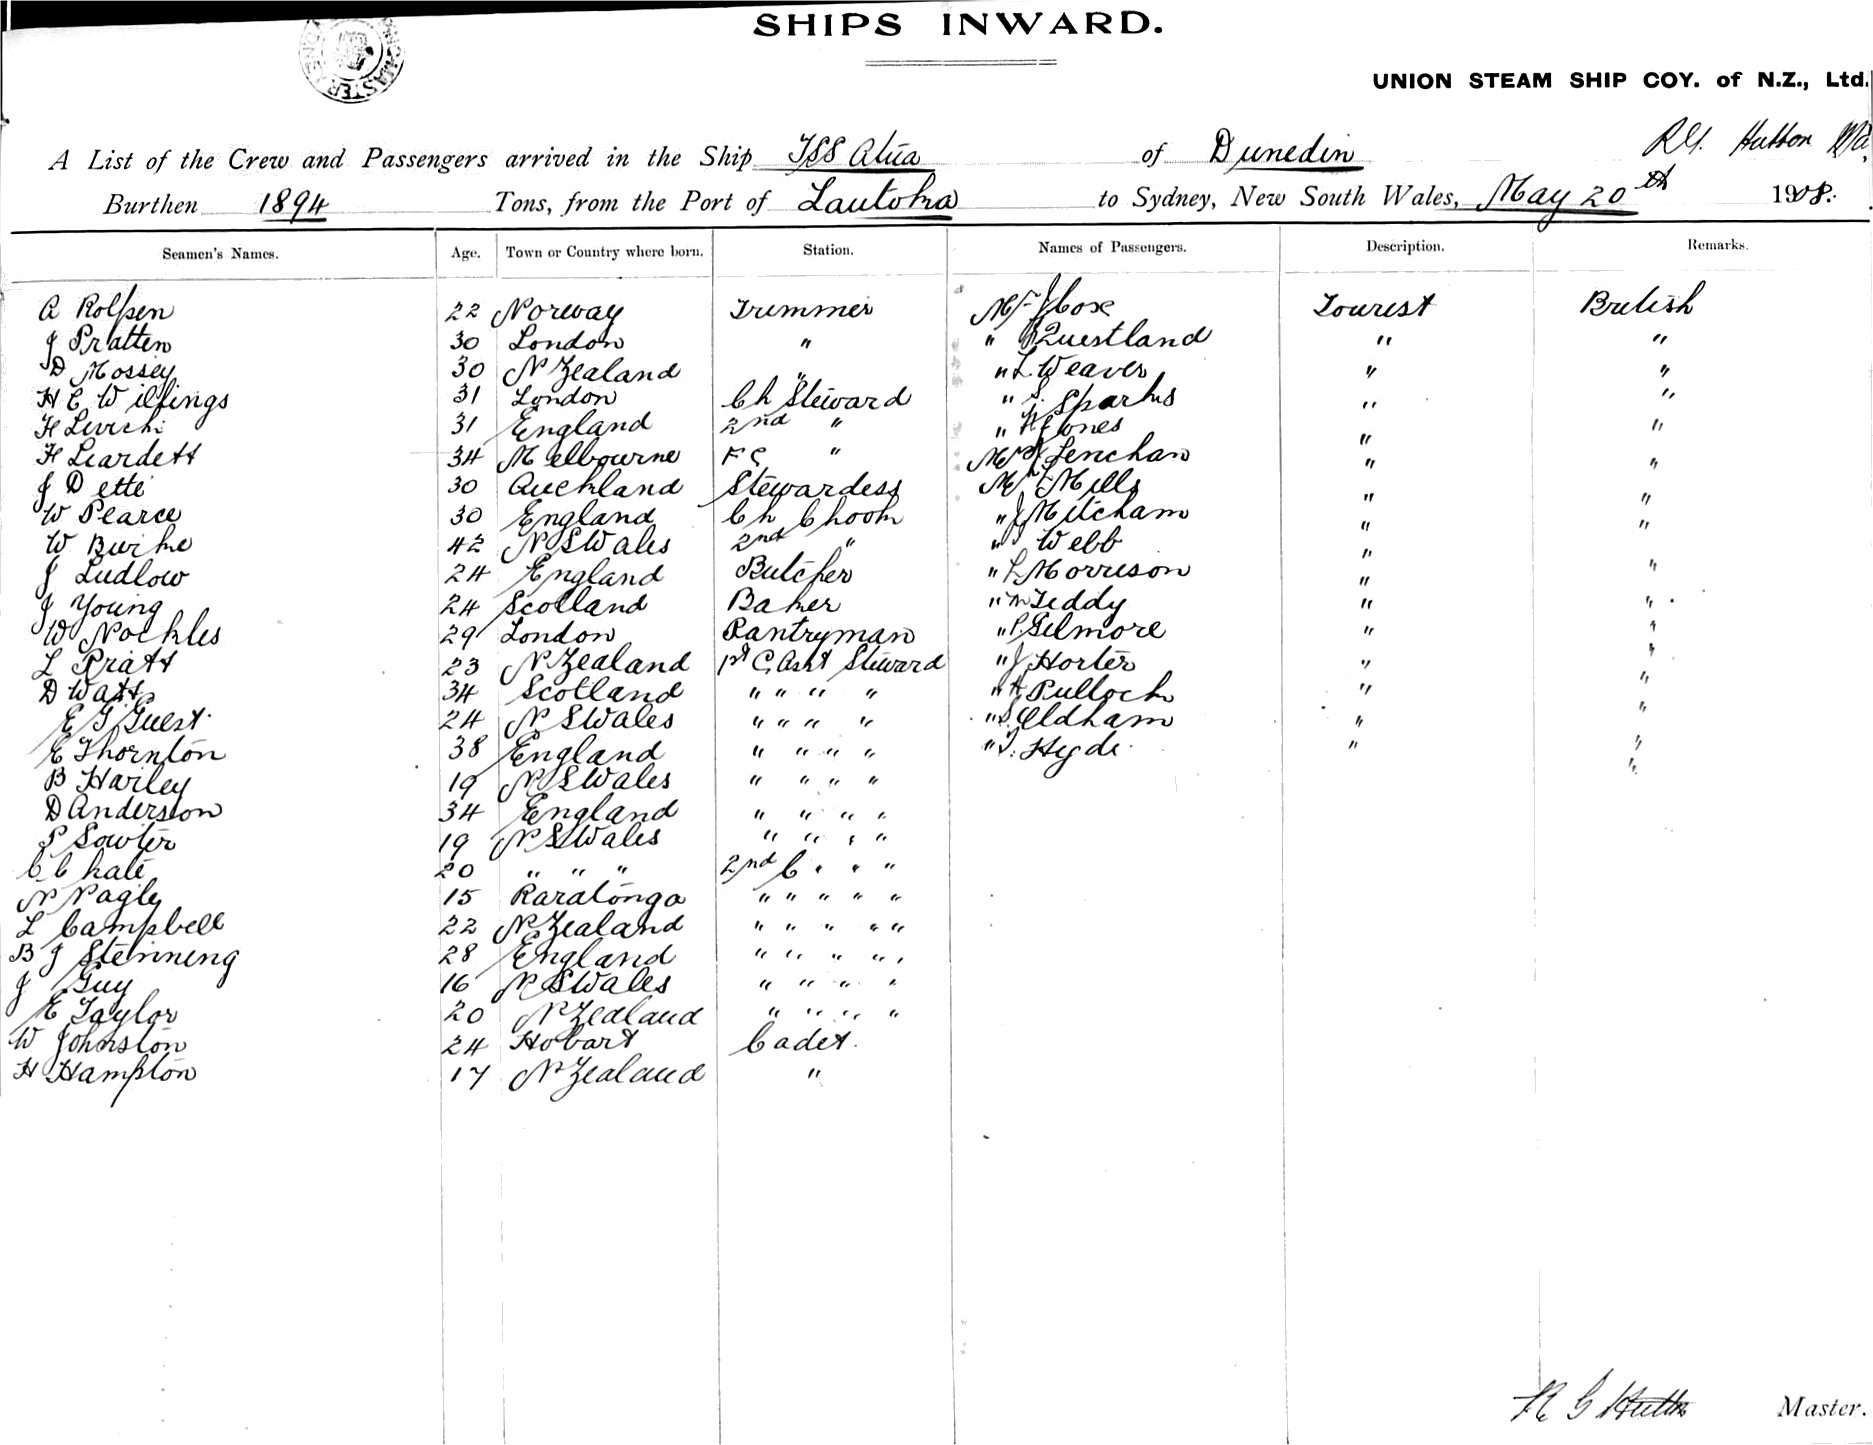 SHIPS INWARD.
UNION STEAM SHIP COY. of N.Z., Ltd.
A List of the Crew and Passengers arrived in the Ship TSS Atua of Dunedin R G Hutton
Burthen 1894 Tons, from the Port of Lautoka to Sydney, New South Wales, May 20th 1908.
Seamen's Names. Age. Town or Country where born. Station. Names of Passengers. Description. Remarks.
A Rolfsen 22 Norway Trimmer Mr J Cox Tourist British
J Pratten 30 London " " Questland " "
D Mossey 30 N Zealand " " L Weaver " "
H E Willings 31 London Ch Steward " S Sparks " "
H 31 England 2nd " " Jones " "
H Liardett 34 Melbourne F C " Lenehan " "
J Dette 30 Auckland Stewardess Mr Mills " "
W Pearce 30 England Ch Chook " J Mitcham " "
W Burke 42 N S Wales 2nd " " Webb "
J Ludlow 24 England Butcher " L Morrison " "
J Young 24 Scotland Baker " M Teddy " "
W Nockles 29 London Pantryman " P. Gilmore " "
L Pratt 23 N Zealand 1st C Asst Steward " J Horter " "
D Watts 34 Scotland " " " " " A Pulloch " "
E G Guest 24 N S Wales " " " " " S Oldham " "
E Thornton 38 England " " " " " T. Hyde " "
B Harley 19 N S Wales " " " " "
D Anderson 34 England " " " "
P Sowter 19 N S Wales " " " "
C Chate 20 " " " 2nd C " " "
N Nagle 15 Raratonga " " " " "
L Campbell 22 N Zealand " " " " "
B J Stenning 28 England " " " " "
J Guy 16 N S Wales " " " "
E Taylor 20 N Zealand " " " " "
W Johnston 24 Hobart Cadet.
H Hampton 17 N Zealand "
R G Hutton Master.